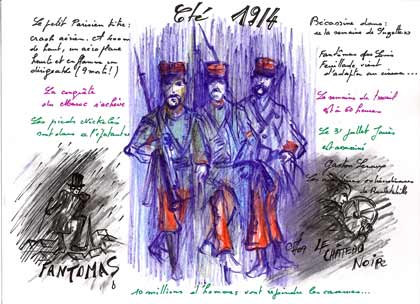 Eté 1914
Le petit Parisien titre:
crash aérien. A 600m
de haut, un aéroplane
heurte et enflamme un
dirigeable (9 morts!)
La conquête
du Maroc s'achève
Les pieds Nickelés
sont dans l'infanterie
FANTOMAS
Bécassine dans:
la semaine de Suzette
Fantômas que Louis
Feuillade vient
d'adapter au cinéma...
La semaine de travail
est à 60 heures
Le 31 juillet Jaurès
est assassiné
Gaston Leroux
de Rouletabille
LE CHÂTEAU
NOIR
10 millions d'hommes vont rejoindre les casernes...